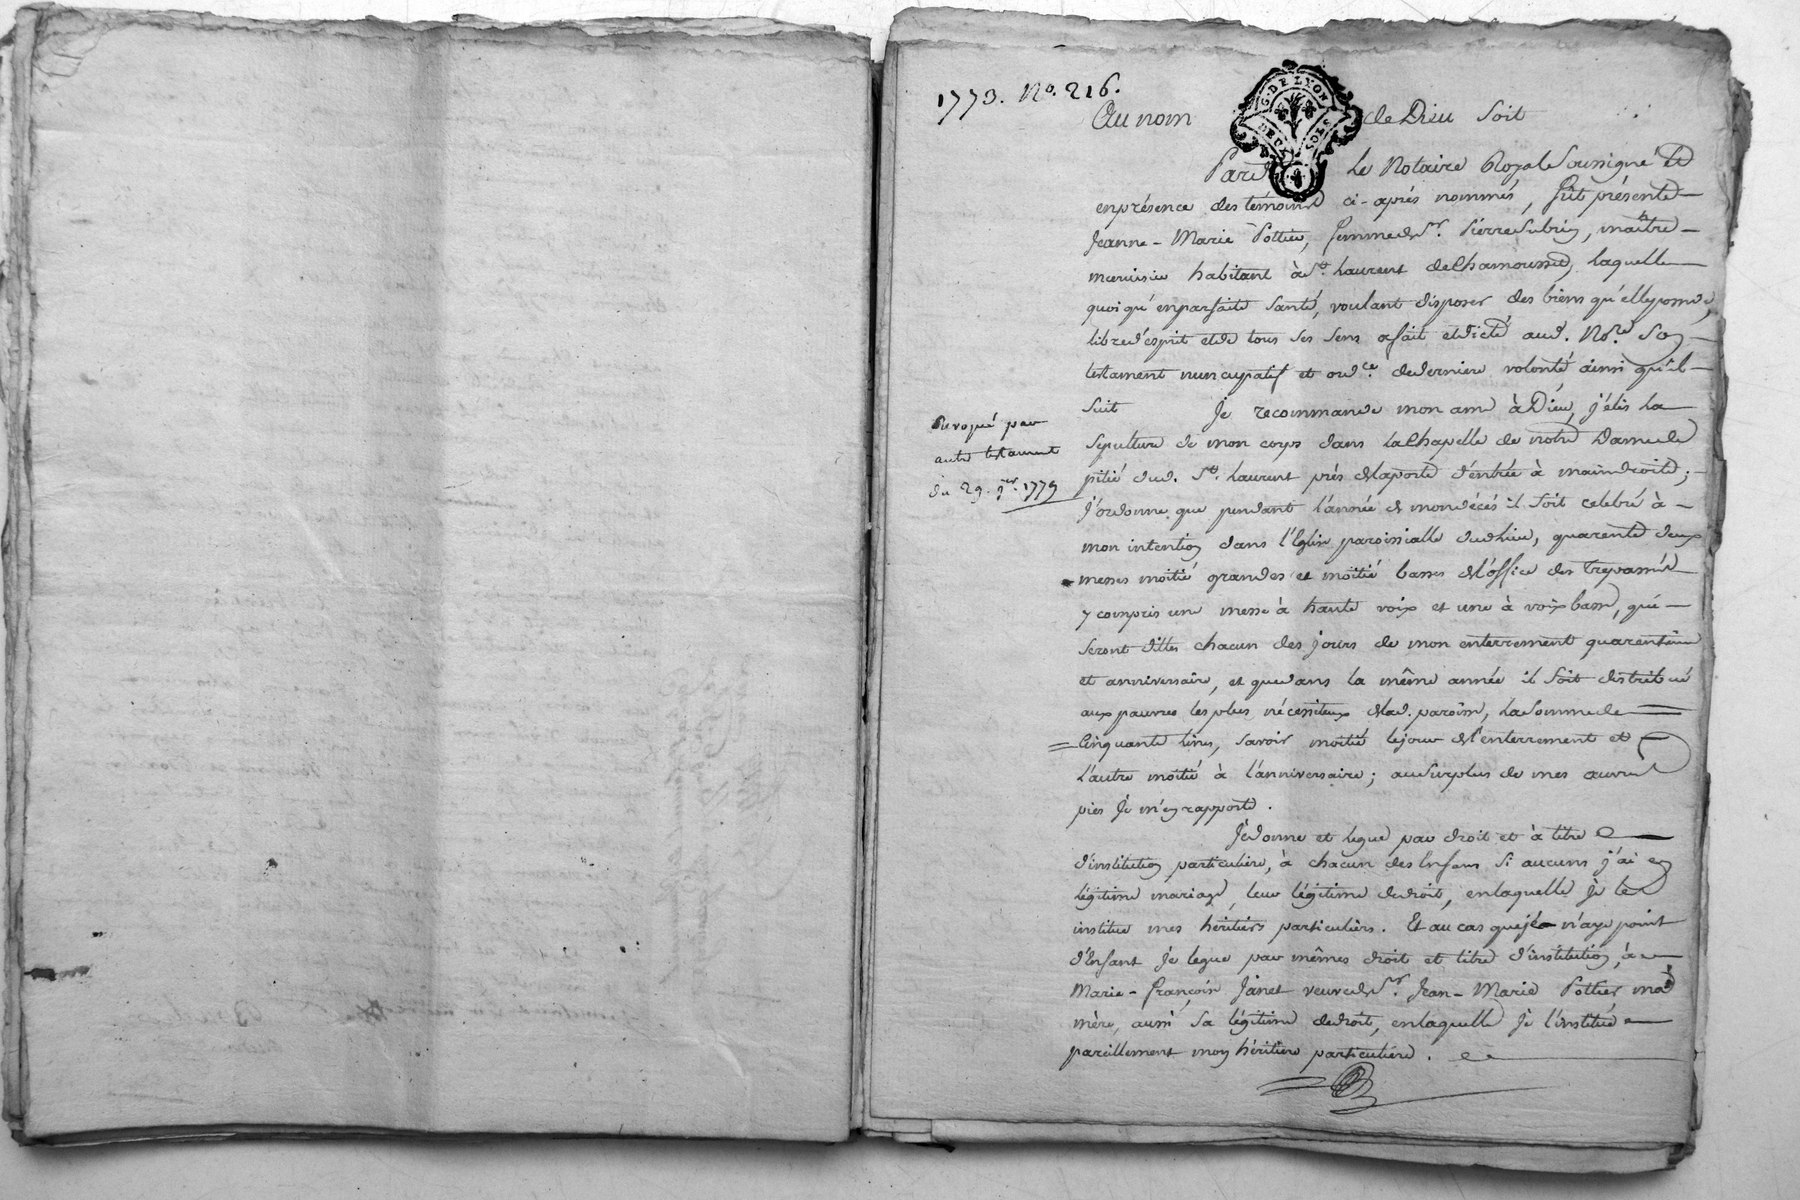 1773. No. 216.
G. DE LYON
DEUX SOLS
Au nom de Dieu soit
Pard. Le Notaire Royal Soussigné Et
en présence des témoins ci-après nommés, fut présente
Jeanne-Marie Pottier, femme de Sr. Pierre Subrin, maître
menuisier habitant à St. Laurent de Chamousset, laquelle
quoiqu'en parfaite santé, voulant disposer des biens qu'elle possede,
libre d'esprit et de tous ses sens a fait et dicté aud. No.re son
testament nuncupatif et ord.ce de derniere volonté ainsi qu'il
suit Je recommande mon ame à Dieu, j'élis la
Revoqué par
autre testament
du 29. 9.er 1779
sepulture de mon corps dans la Chapelle de notre Dame de
pitié dud. St. Laurent près de la porte d'entrée à main droite;
j'ordonne que pendant l'année de mon décés il soit celebré à
mon intention dans l'Eglise paroissialle dud. lieu, quarente deux
messes moitié grandes et moitié basses de l'office des trepassés
y compris une messe à haute voix et une à voix basse, qui
seront dittes chacun des jours de mon enterrement quarentaine
et anniversaire, et que dans la même année il soit distribué
aux pauvres les plus nécessiteux de lad. paroisse, la somme de
Cinquante livres, savoir moitié le jour de l'enterrement et
l'autre moitié à l'anniversaire; au surplus de mes œuvres
pies je m'en rapporte.
Je donne et legue par droit et à titre
d'institution particulière, à chacun des Enfans si aucuns j'ai en
légitime mariage, leur légitime de droit, en laquelle je les
institue mes héritiers particuliers. Et au cas que je n'aye point
d'Enfant je legue par mêmes droit et titre d'institution, à
Marie-françoise Janet veuve de Sr. Jean-Marie Pottier, ma
mère, aussi sa légitime de droit, en laquelle je l'institue
pareillement mon héritiere particuliere.